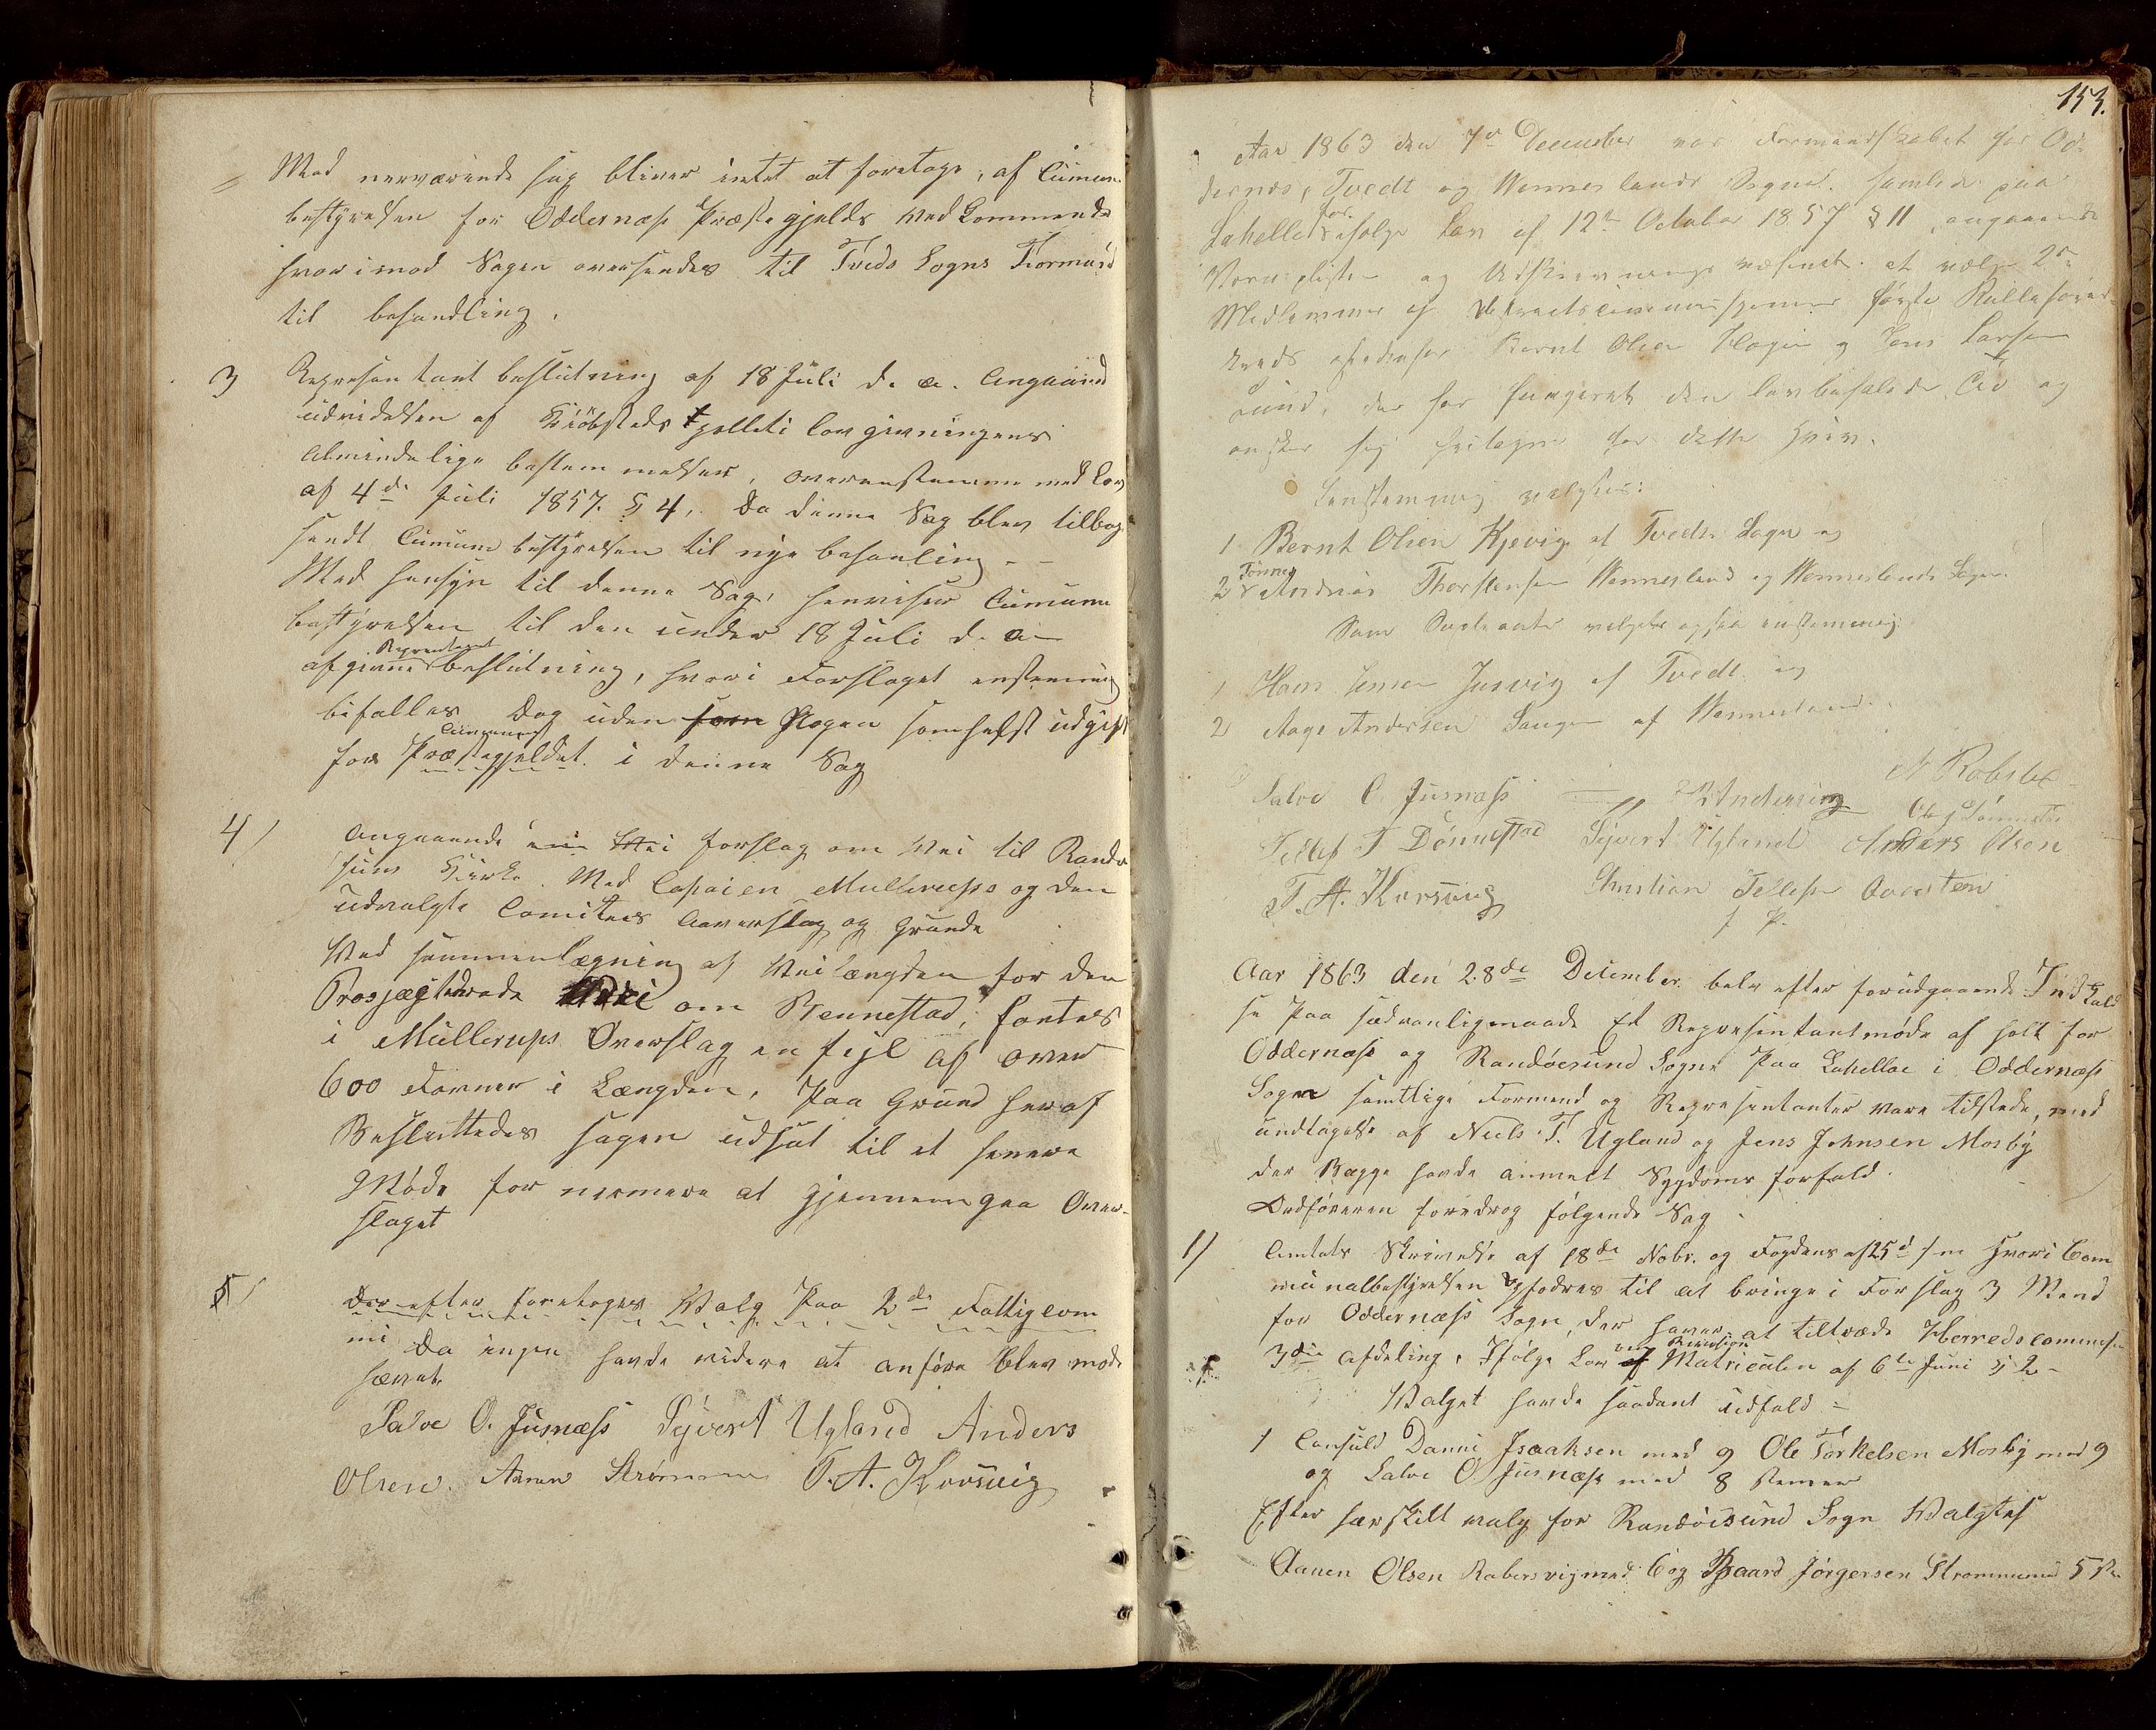 Med nerværende sag bliver intet at foretage, af Cumun
bestyrelsen for Oddernæs Præstegjelds vedkommende
hvorimod Sagen oversendes til Tveds Sogns Formænd
til behandling.
3 Representant beslutning af 18 Juli d. a. Angaaend
udvidelsen af Kiöbsteds polleti lovgivningens
Almindelige bestemmelser, overenstemme med Lov
af 4de Juli 1857. § 4, Da denne Sag blev tilbag
sendt Cumune bestyrelsen til nye behanling –
Med hensyn til denne Sag, henviser Cumune
bestyrelsen til den under 18 Juli d. a
afgivne Representant beslutning, hvori Forslaget enstemmig
bifalles Dog uden som Nogen somhelst udgift
for Præstegjeldet i denne Sag
4/ Angaaende forslag om Vei til Rande
sund Kirke. Med Capaien Mullerups og den
udvalgte Comitees Overslag og Grunde
Ved sammenlægning af Veilængden for den
Prosjægterede Vei om Rennestad, fantes
i Müllerups Overslag en fejl af over
600 Favner i Længden, Paa Grund heraf
Besluttedes sagen udsat til et senere
Møde for nermere at gjennemgaa Over-
slaget
5/ Derefter foretoges Valg Paa 2de Fattigcom
mi Da ingen havde videre at anføre blev møde
hævet.
Salve O. Jusnæss Sejvert Ugland Anders
Olsen. Aanen Strømme T. A. Korsvig
153.
Aar 1863 den 7de December var Formandskabet for Od-
dernes, Tvedt og Wenneslands Sogne samlede paa
Lahelle for ifølge Lov af 12te October 1857 § 11, angaaende
Værnepligten og Udskrivningsvæsenet at vælge 2de
Medlemmer af første Rulleføre
Bernt Olsen og Jens Larsen
der har fungeret den lovbefalede Tid og
ønsker sig fritagne for dette Hverv.
Eenstemmig valgtes:
1 Bernt Olsen Kjevig af Tvedts Sogn og
2 Tönnes Andreas Thorstensen Wennesland af Wenneslands Sogn.
Som Suplianter valgtes ogsaa enstemmig
1 Hans Jensen Jusvig af Tvedt og
2 Aage Andersen Lauge af Wennesland.
N Robsted
Salve O. Jusnæss
Tellef T Dönnestad Sejvert Ugland Anders Olsen
T. A. Korsvig Christian Tellefsen
Aar 1863 den 28de December belv efter forudgaaende Indkald
se Paa sædvanligmaade Et Representantmøde af holt for
Oddernæss og Randöesund Sogne Paa Lahelle i Oddernæss
Sogn samtlige Formend og Representanter vare tilstede, med
undtagelse af Niels T. Ugland og Jens Johnsen Mosby
der Begge havde anmelt Sygdoms forfald.
Ordføreren foredrog følgende Sag
1/ Amtets Skrivelse af 18de Nobr. og Fogdens af 25d s. m. Hvori Com
munalbestyrelsen opfodres til at bringe i Forslag 3 Mend
for Oddernæss Sogn, der haver at tiltræde Herredscommis
3die Afdeling, Ifølge Lov om Revision af Matriculen af 6te Juni § 2 –
Valget havde saadant udfald –
1 Consuld Danni Isaaksen med 9 Ole Torkelsen Mosby med 9
og Salve O. Jusnæss med 8 stemer
Efter særskilt valg for Randöesund Sogn Valgtes
Aanen Olsen Rabersvig med 6 og Baard Jörgensen Strömme med 5 St